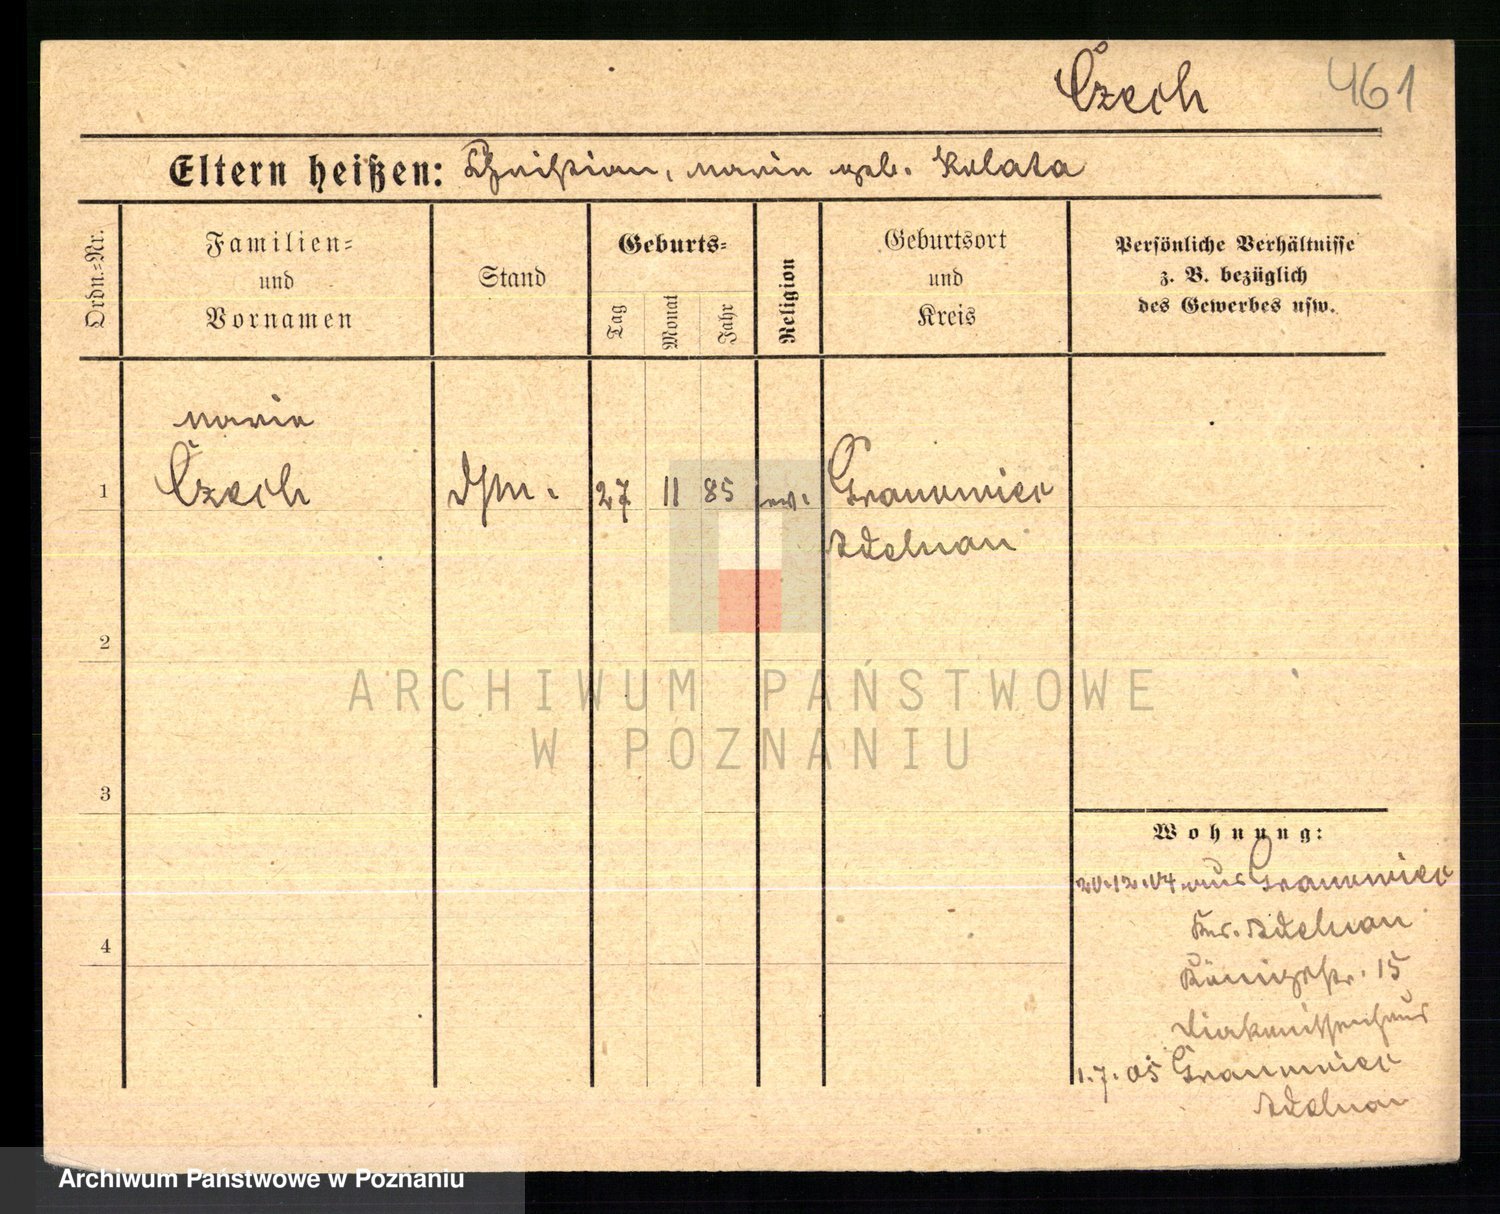 Czech 461
Eltern heißen: Christian, Marie geb. Kolata
Ordn.=Nr.
Familien=
und
Vornamen
Stand
Geburts=
Tag
Monat
Jahr
Religion
Geburtsort
und
Kreis
Persönliche Verhältnisse
z. B. bezüglich
des Gewerbes usw.
Marie
1 Czech Dstm. 27 11 85 ev. Granowiec
Adelnau
2
3
4
ARCHIWUM PAŃSTWOWE
W POZNANIU
Wohnung:
20.12.04 aus Granowiec
Krs. Adelnau
Königstr. 15
Diakonissenhaus
1.7.05 Granowiec
Adelnau
Archiwum Państwowe w Poznaniu